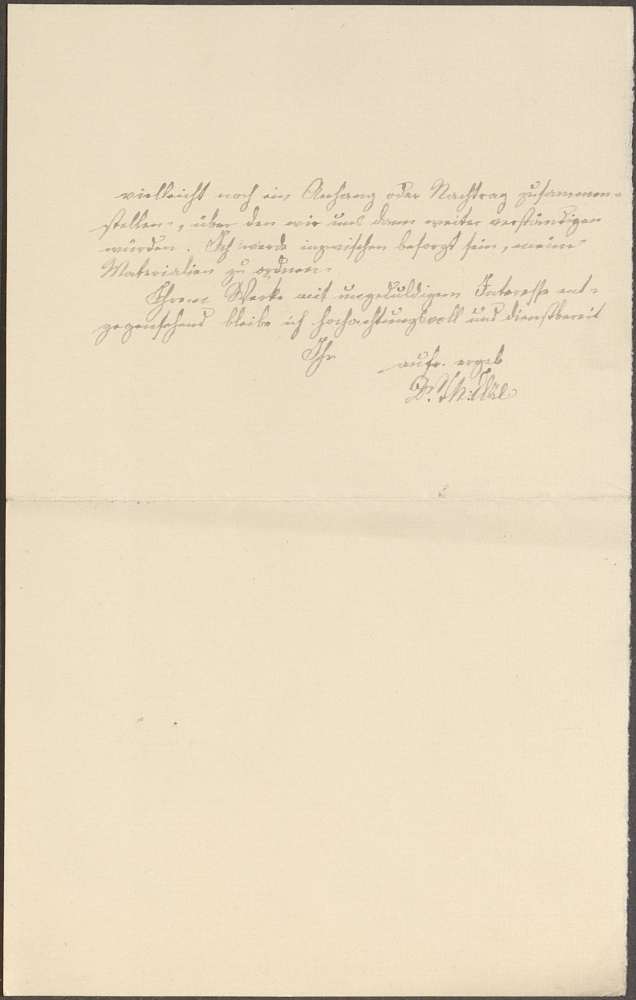 vielleicht noch ein Anhang oder Nachtrag zusammen-
stellen, über den wir uns dann weiter verständigen
würden. Ich werde inzwischen besorgt sein, meine
Materialien zu ordnen.
Ihrem Werke mit ungeduldigem Interesse ent-
gegensehend bleibe ich hochachtungsvoll und dienstbereit
Ihr aufr. ergeb
Dr.